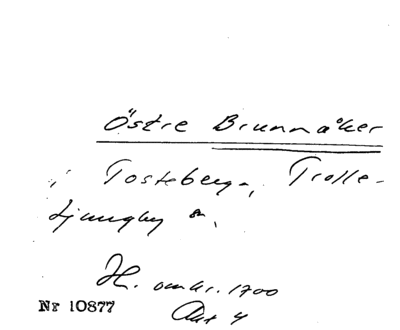 Östre Brunnåker
i Tosteberga, Trolle-
Ljungby sn.
H. omkr. 1700
Akt 4
Nr 10877